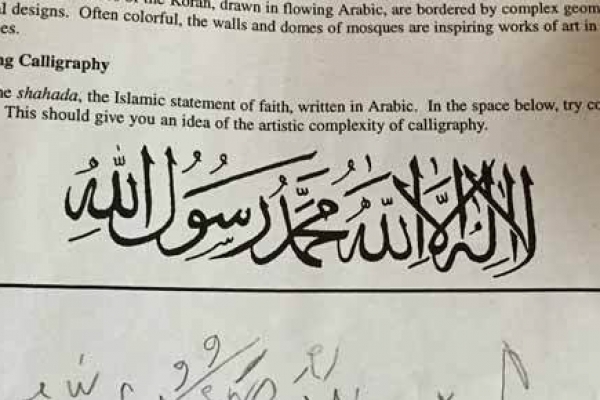 of the Koran, drawn in flowing Arabic, are bordered by complex geom
l designs. Often colorful, the walls and domes of mosques are inspiring works of art in
es.
ng Calligraphy
he shahada, the Islamic statement of faith, written in Arabic. In the space below, try co
This should give you an idea of the artistic complexity of calligraphy.
لا إله إلا الله محمد رسول الله